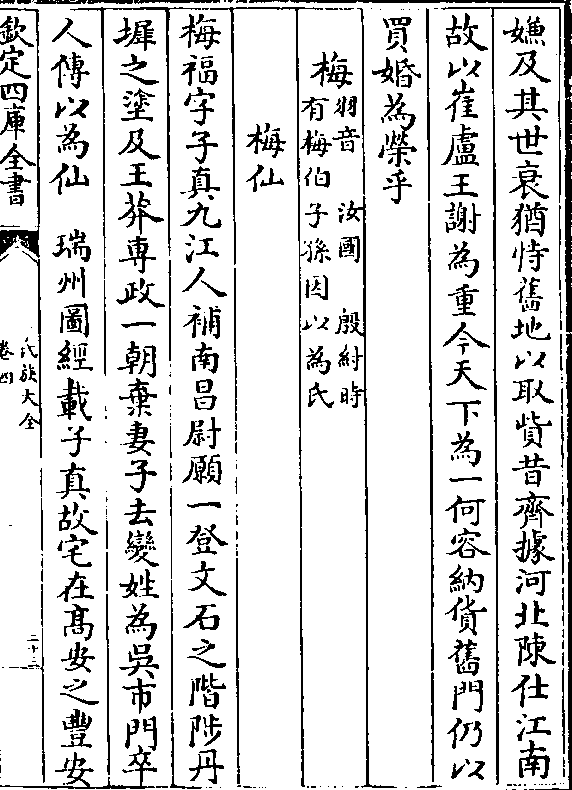 嫌及其世衰猶恃舊地以取貲昔齊據河北陳仕江南
故以崔盧王謝為重今天下為一何容納貨舊門仍以
買婚為榮乎
梅羽音 汝國 殷紂時
有梅伯子孫因以為氏
梅仙
梅福字子真九江人補南昌尉願一登文石之階陟丹
墀之塗及王莽専政一朝棄妻子去變姓為吳市門卒
人傳以為仙 瑞州圖經載子真故宅在髙安之豐安
欽定四庫全書
氏族大全
卷四
二十三